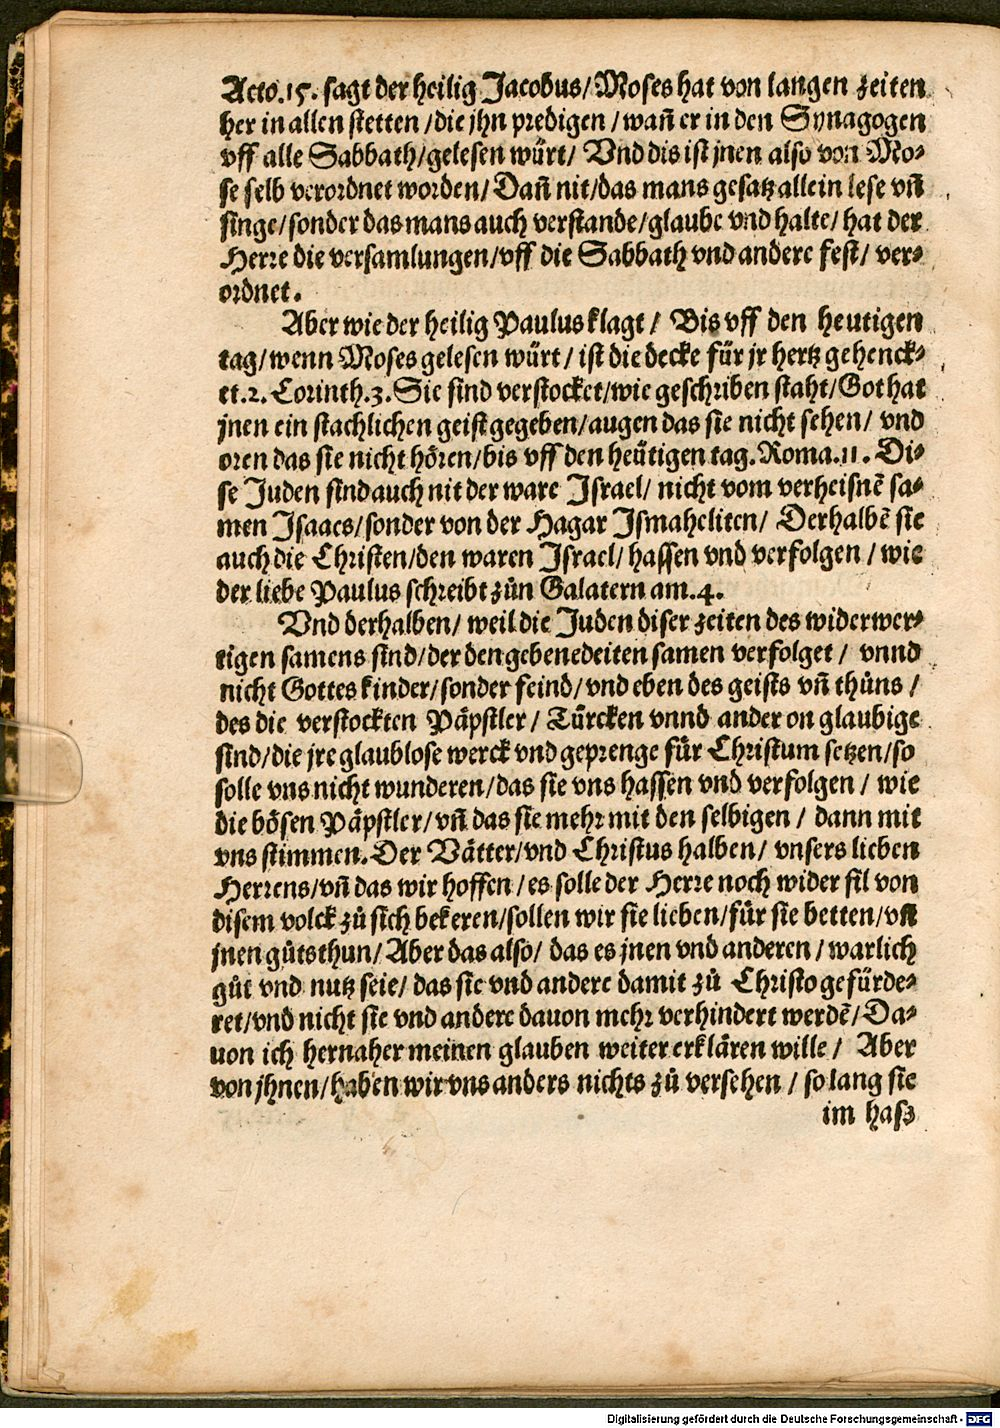 Acto.15. sagt der heilig Jacobus/Moses hat von langen zeiten
her in allen stetten/die jhn predigen/wañ er in den Synagogen
vff alle Sabbath/gelesen würt/ Vnd dis ist jnen also von Mo⸗
se selb verordnet worden/Dañ nit/das mans gesatz allein lese vñ
singe/sonder das mans auch verstande/glaube vnd halte/hat der
Herre die versamlungen/vff die Sabbath vnd andere fest/ ver⸗
ordnet.
Aber wie der heilig Paulus klagt/ Bis vff den heutigen
tag/wenn Moses gelesen würt/ist die decke für jr hertz gehenck⸗
et.2. Corinth.3. Sie sind verstocket/wie geschriben staht/Got hat
jnen ein stachlichen geist gegeben/augen das sie nicht sehen/ vnd
oren das sie nicht hören/bis vff den heütigen tag. Roma.11. Di⸗
se Juden sind auch nit der ware Israel/ nicht vom verheisnẽ sa⸗
men Isaacs/sonder von der Hagar Ismaheliten/ Derhalbẽ sie
auch die Christen/den waren Israel/ hassen vnd verfolgen/wie
der liebe Paulus schreibt zůn Galatern am.4.
Vnd derhalben/ weil die Juden diser zeiten des widerwer⸗
tigen samens sind/der den gebenedeiten samen verfolget/ vnnd
nicht Gottes kinder/sonder feind/vnd eben des geists vñ thůns/
des die verstockten Päpstler/ Türcken vnnd ander on glaubige
sind/die jre glaublose werck vnd geprenge für Christum setzen/so
solle vns nicht wunderen/das sie vns hassen vnd verfolgen/ wie
die bösen Päpstler/vñ das sie mehr mit den selbigen/ dann mit
vns stimmen. Der Vätter/vnd Christus halben/ vnsers lieben
Herrens/vñ das wir hoffen/es solle der Herre noch wider fil von
disem volck zů sich bekeren/sollen wir sie lieben/für sie betten/vñ
jnen gůts thun/Aber das also/ das es jnen vnd anderen/warlich
gůt vnd nutz seie/das sie vnd andere damit zů Christo gefürde⸗
ret/vnd nicht sie vnd andere dauon mehr verhindert werdẽ/Da⸗
uon ich hernaher meinen glauben weiter erklären wille/ Aber
von jhnen/haben wir vns anders nichts zů versehen/so lang sie
im hasz
Digitalisierung gefördert durch die Deutsche Forschungsgemeinschaft - DFG